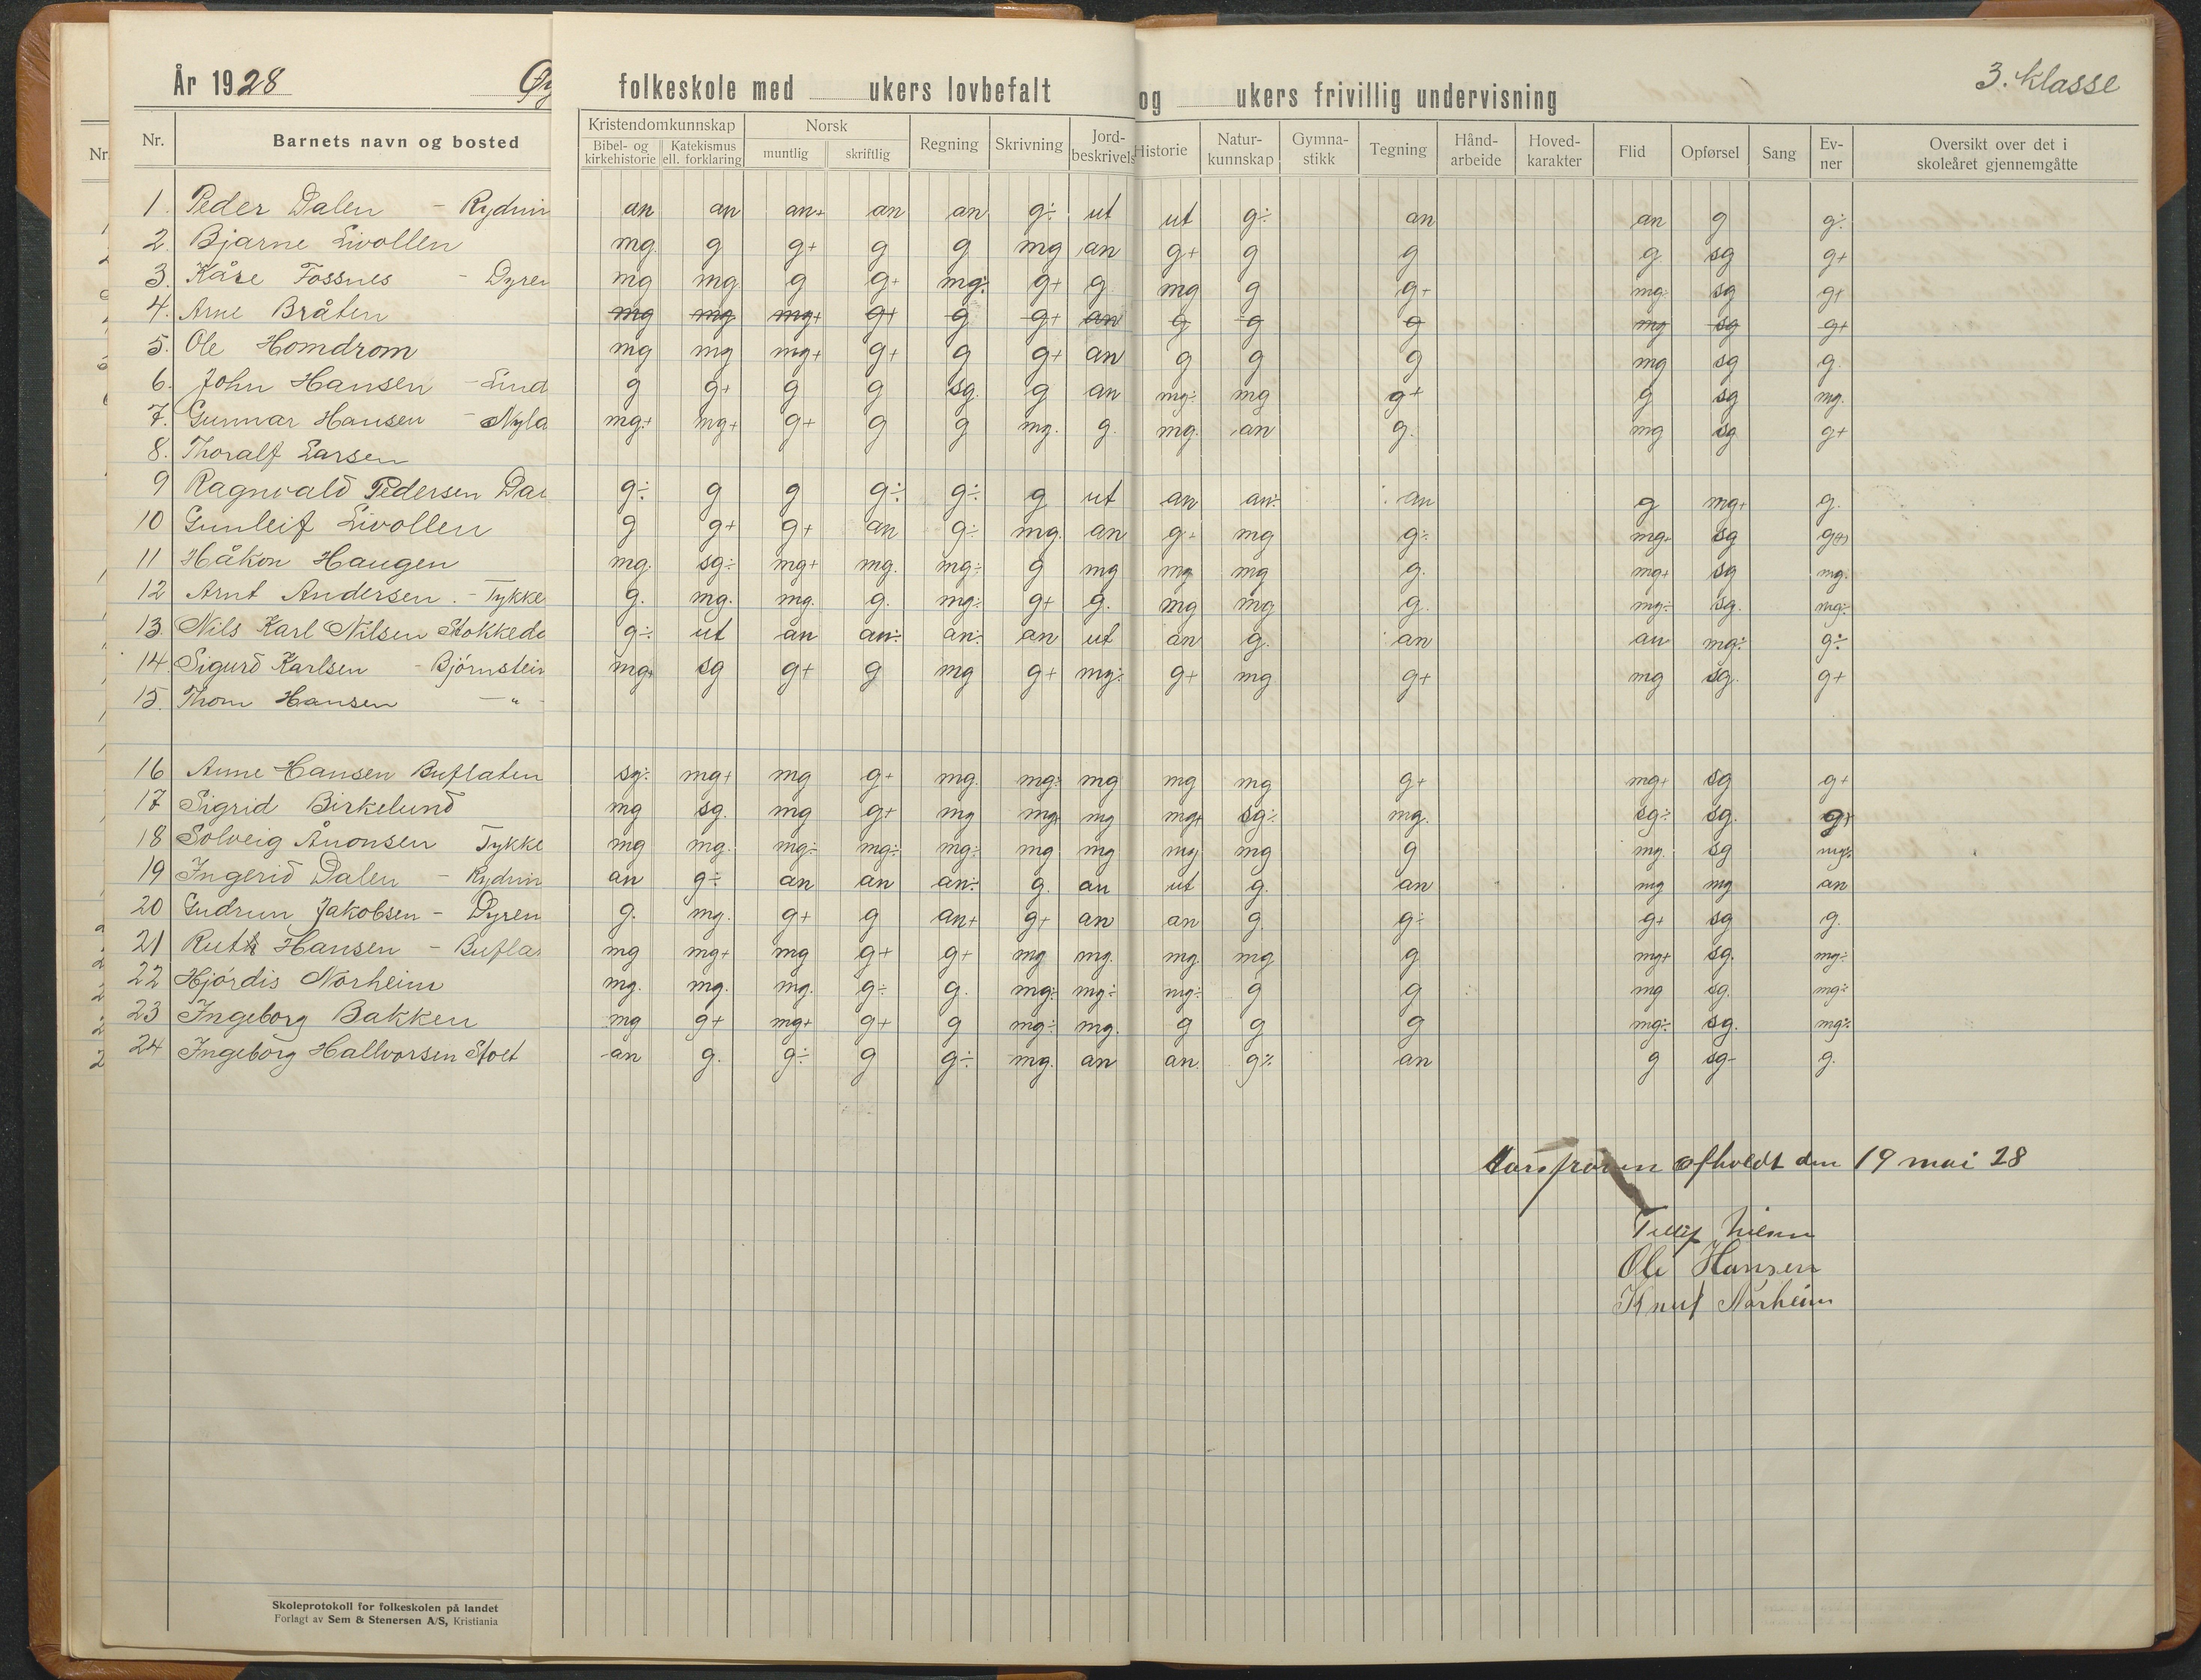 År 1928 Øy folkeskole med ukers lovbefalt og ukers frivillig undervisning 3. klasse
Nr. Barnets navn og bosted Kristendomkunnskap Norsk Regning Skrivning Jord-beskrivels Historie Natur-kunnskap Gymna-stikk Tegning Hånd-arbeide Hoved-karakter Flid Opførsel Sang Ev-ner Oversikt over det i skoleåret gjennemgåtte
Bibel- og kirkehistorie Katekismus ell. forklaring muntlig skriftlig
1. Peder Dalen - an an an+ an an g÷ ut ut g÷ an an g g÷
2. Bjarne Livollen mg. g g+ g g mg an g+ g g g sg g+
3. Kåre Fossnes - Dyren mg mg. g g+ mg÷ g+ g mg g g+ mg. sg g+
4. Arne Bråten mg mg mg+ g+ g g+ an g g g mg sg g+
5. Ole Homdrom mg mg mg+ g+ g g+ an g g g mg sg g.
6. John Hansen - Lind g g+ g g sg. g an mg÷ mg g+ g sg mg.
7. Gunnar Hansen - Nyla mg+ mg+ g+ g g mg. g. mg. an g. mg sg g+
8. Thoralf Larsen
9 Ragnvald Pedersen Dal g÷ g g g÷ g÷ g ut an an÷ an g mg+ g.
10 Gunleif Livollen g g+ g+ an g÷ mg. an g+ mg g÷ mg+ sg g(+)
11 Håkon Haugen mg. sg÷ mg+ mg. mg÷ g mg mg mg g. mg+ sg mg.
12 Arnt Andersen. - Tykke g. mg. mg. g. mg÷ g+ g. mg mg g. mg÷ sg. mg÷
13. Nils Karl Nilsen Stokkeda g÷ ut an an÷ an÷ an ut an g. an an mg÷ g÷
14. Sigurd Karlsen - Bjørnstein mg+ sg g+ g mg g+ mg÷ g+ mg g+ mg sg. g+
15. Thom Hansen — " -
16 Anne Hansen Buflaten sg÷ mg+ mg g+ mg. mg÷ mg mg mg g+ mg+ sg g+
17 Sigrid Birkelund mg sg. mg g+ mg mg+ mg mg+ sg÷ mg. sg÷ sg. g+
18 Solveig Ånonsen Tykke mg mg. mg÷ mg÷ mg÷ mg mg mg mg g mg. sg mg÷
19 Ingerid Dalen - an g÷ an an an÷ g. an ut g. an mg mg an
20 Gudrun Jakobsen - Dyren g. mg. g+ g an+ g+ an an g. g÷ g+ sg g.
21 Ruth Hansen - Buflat mg mg+ mg g+ g+ mg mg. mg. mg g mg+ sg. mg÷
22 Hjørdis Norheim mg. mg. mg. g÷ g. mg÷ mg÷ mg÷ g g mg sg. mg÷
23 Ingeborg Bakken mg g+ mg+ g+ g mg÷ mg. g g g mg÷ sg. mg÷
24 Ingeborg Hallvorsen Stoet an g. g÷ g g÷ mg. an an. g÷ an g sg- g.
Aarsprøven afholdt den 19 mai 28
Ole Hansen
Knut Norheim
Skoleprotokoll for folkeskolen på landet
Forlagt av Sem & Stenersen A/S, Kristiania